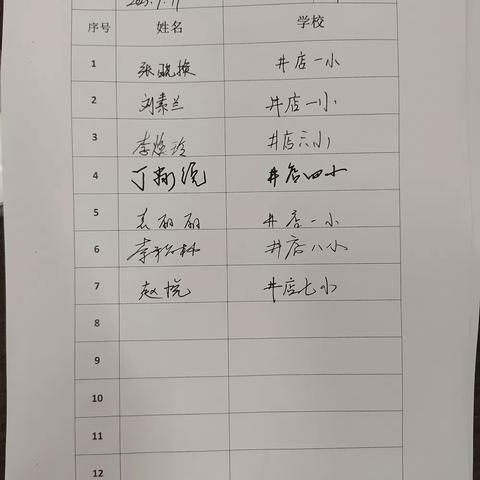 序号 姓名 学校
1 张晓换 井店一小
2 刘素兰 井店一小
3 李焕玲 井店六小
4 丁 井店四小
5 袁丽丽 井店一小
6 李 井店八小
7 赵悦 井店七小
8
9
10
11
12